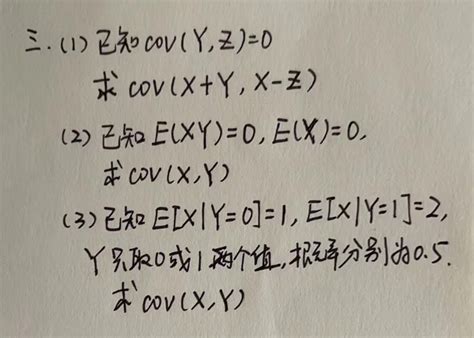 三.(1) 已知cov(Y,Z)=0
求 cov(X+Y, X-Z)
(2) 已知 E(XY)=0, E(X)=0,
求 cov(X,Y)
(3) 已知 E[X|Y=0]=1, E[X|Y=1]=2,
Y只取0或1两个值,概率分别为0.5.
求 cov(X,Y)